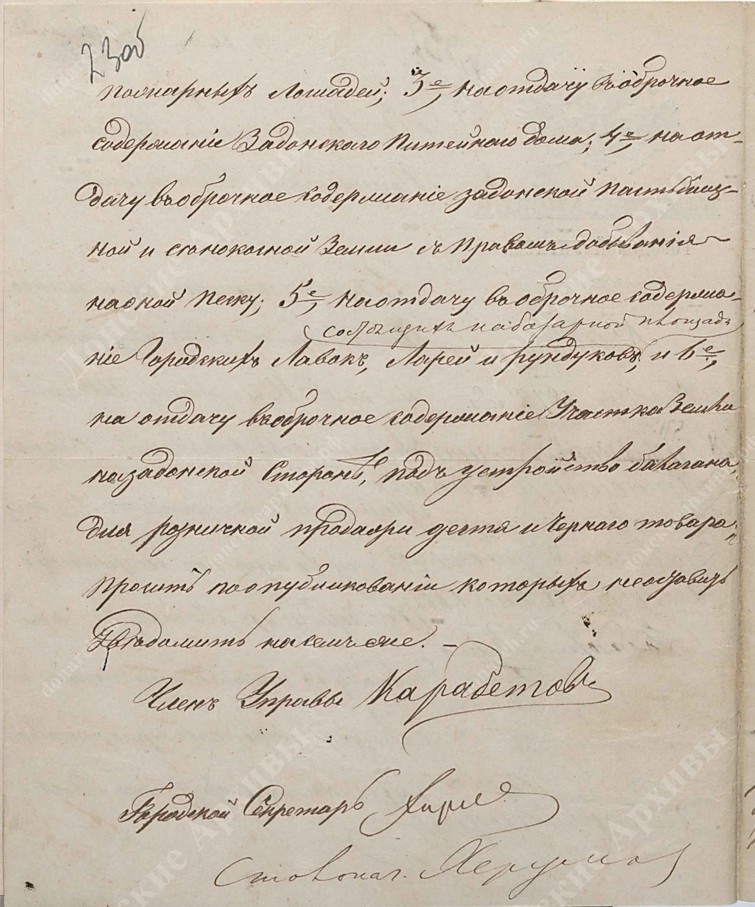 23об
пожарныхъ Лошадей; 3е, на отдачу въ оброчное
содержаніе Задонскаго Питейнаго дома; 4е, на от-
дачу въ оброчное содержаніе задонской пастьбищ-
ной и сѣнокосной Земли съ Правомъ добыванія
на оной песку; 5е, на отдачу въ оброчное содержа-
состоящихъ на базарной площади
ніе Городскихъ Лавокъ, Ларей и рундуковъ; и 6е,
на отдачу въ оброчное содержаніе Участка Земли
на задонской Сторонѣ, подъ устройство балагана,
для розничной продажи дегтя и Чернаго товара,
проситъ по опубликованіи которыхъ не оставить
Увѣдомить на семъ же. —
Членъ Управы Карабетовъ
Городской Секретарь
Столонач.